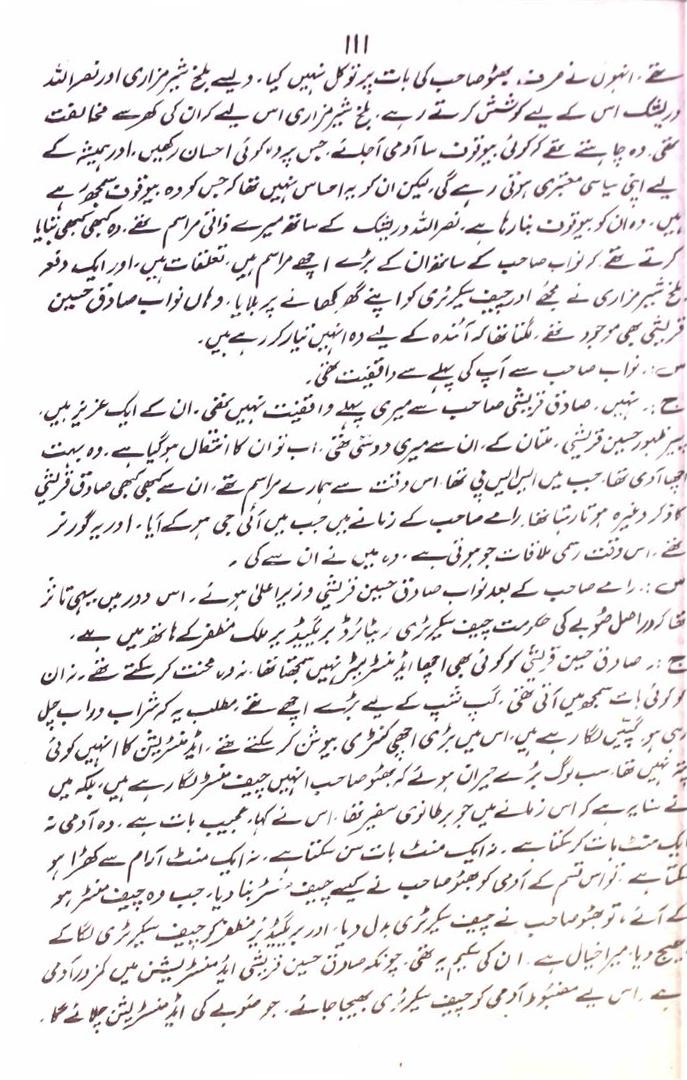 ۱۱۱
تھے۔ انہوں نے صرف، بھٹو صاحب کی بات پر توکل نہیں کیا۔ ویسے بلخ شیر مزاری اور نصراللہ
دریشک اس کے لیے کوشش کرتے رہے۔ بلخ شیر مزاری اس لیے کہ ان کی کھر سے مخالفت
تھی۔ وہ چاہتے تھے کہ کوئی بیوقوف سا آدمی آجائے، جس پر وہ کوئی احسان رکھیں، اور ہمیشہ کے
لیے اپنی سیاسی معتبری ہوتی رہے گی، لیکن ان کو یہ احساس نہیں تھا کہ جس کو وہ بیوقوف سمجھ رہے
ہیں، وہ ان کو بیوقوف بنا رہا ہے۔ نصراللہ دریشک کے ساتھ میرے ذاتی مراسم تھے۔ وہ کبھی کبھی بتایا
کرتے تھے کہ نواب صاحب کے ساتھ ان کے بڑے اچھے مراسم ہیں، تعلقات ہیں، اور ایک دفعہ
بلخ شیر مزاری نے مجھے اور چیف سیکرٹری کو اپنے گھر کھانے پر بلایا، وہاں نواب صادق حسین
قریشی بھی موجود تھے، لگتا تھا کہ آئندہ کے لیے وہ انہیں تیار کر رہے ہیں۔
س:۔ نواب صاحب سے آپ کی پہلے سے واقفیت تھی۔
ج:۔ نہیں، صادق قریشی صاحب سے میری پہلے واقفیت نہیں تھی۔ ان کے ایک عزیز ہیں،
پیر ظہور حسین قریشی، ملتان کے، ان سے میری دوستی تھی، اب تو ان کا انتقال ہو گیا ہے۔ وہ بہت
اچھا آدمی تھا، جب میں ایس ایس پی تھا، اس وقت سے ہمارے مراسم تھے، ان سے کبھی کبھی صادق قریشی
کا ذکر وغیرہ ہوتا رہتا تھا۔ رامے صاحب کے زمانے میں جب میں آئی جی ہو کے آیا۔ اور یہ گورنر
تھے۔ اس وقت رسمی ملاقات جو ہوتی ہے، وہ میں نے ان سے کی۔
س:۔ رامے صاحب کے بعد نواب صادق حسین قریشی وزیر اعلیٰ ہوئے۔ اس دور میں یہی تاثر
تھا کہ دراصل صوبے کی حکومت چیف سیکرٹری ریٹائرڈ بریگیڈیر ملک مظفر کے ہاتھ میں ہے۔
ج:۔ صادق حسین قریشی کو کوئی بھی اچھا ایڈمنسٹریٹر نہیں سمجھتا تھا، نہ وہ محنت کر سکتے تھے۔ نہ ان
کو کوئی بات سمجھ میں آتی تھی، گپ شپ کے لیے بڑے اچھے تھے، مطلب یہ کہ شراب وراب چل
رہی ہو، گپیں لگا رہے ہیں، اس میں بڑی اچھی کنٹری بیوشن کر سکتے تھے۔ ایڈمنسٹریشن کا انہیں کوئی
پتہ نہیں تھا، سب لوگ بڑے حیران ہوئے کہ بھٹو صاحب انہیں چیف منسٹر لگا رہے ہیں، بلکہ میں
نے سنا یہ ہے کہ اس زمانے میں جو برطانوی سفیر تھا، اس نے کہا، عجیب بات ہے۔ وہ آدمی نہ
ایک منٹ بات کر سکتا ہے۔ نہ ایک منٹ بات سن سکتا ہے، نہ ایک منٹ آرام سے کھڑا ہو
سکتا ہے۔ تو اس قسم کے آدمی کو بھٹو صاحب نے کیسے چیف منسٹر بنا دیا، جب وہ چیف منسٹر ہو
کے آئے، تو بھٹو صاحب نے چیف سیکرٹری بدل دیا، اور بریگیڈیر مظفر کو چیف سیکرٹری لگا کے
بھیج دیا، میرا خیال ہے۔ ان کی سکیم یہ تھی، چونکہ صادق حسین قریشی ایڈمنسٹریشن میں کمزور آدمی
ہے۔ اس لیے مضبوط آدمی کو چیف سیکرٹری بھیجا جائے۔ جو صوبے کی ایڈمنسٹریشن چلائے گا۔